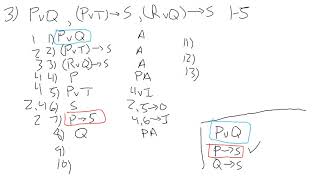 3) PvQ , (PvT)→S , (RvQ)→S ⊢S
1 1) PvQ A 11)
2 2) (PvT)→S A 12)
3 3) (RvQ)→S A 13)
4 4) P PA
4 5) PvT 4vI
2,4 6) S 2,5→O
2 7) P→S 4,6→I
8) Q PA
9)
10)
PvQ
P→S ✓
Q→S